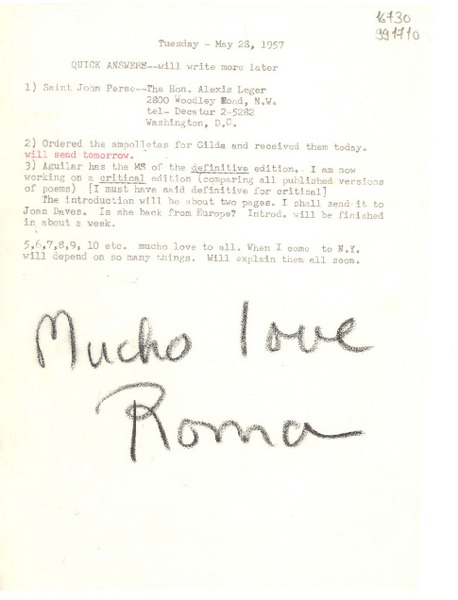 16730
991710
Tuesday - May 28, 1957
QUICK ANSWERS--will write more later
1) Saint John Perse--The Hon. Alexis Leger
2800 Woodley Road, N.W.
tel- Decatur 2-5282
Washington, D.C.
2) Ordered the ampolletas for Gilda and received them today.
will send tomorrow.
3) Aguilar has the MS of the definitive edition. I am now
working on a critical edition (comparing all published versions
of poems) [I must have said definitive for critical]
The introduction will be about two pages. I shall send it to
Joan Daves. Is she back from Europe? Introd. will be finished
in about a week.
5,6,7,8,9, 10 etc. mucho love to all. When I come to N.Y.
will depend on so many things. Will explain them all soon.
Mucho love
Roma